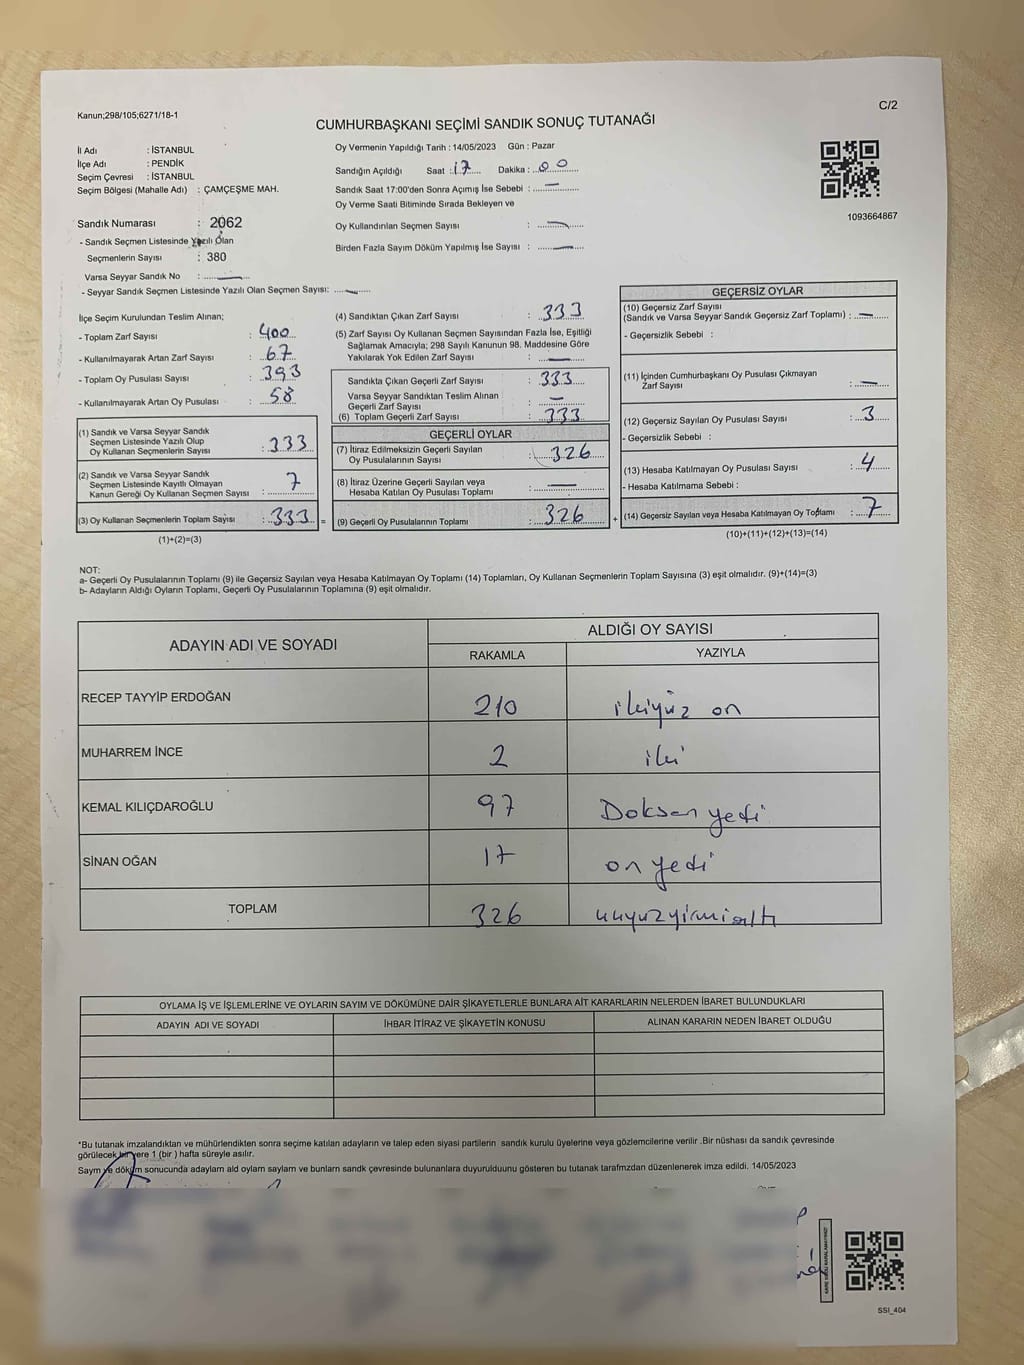 Kanun;298/105;6271/18-1
C/2
CUMHURBAŞKANI SEÇİMİ SANDIK SONUÇ TUTANAĞI
İl Adı : İSTANBUL
İlçe Adı : PENDİK
Seçim Çevresi : İSTANBUL
Seçim Bölgesi (Mahalle Adı) : ÇAMÇEŞME MAH.
Oy Vermenin Yapıldığı Tarih : 14/05/2023 Gün : Pazar
Sandığın Açıldığı Saat : 17 Dakika : 00
Sandık Saat 17:00'den Sonra Açımış İse Sebebi : —
Oy Verme Saati Bitiminde Sırada Bekleyen ve
Oy Kullandırılan Seçmen Sayısı : —
Birden Fazla Sayım Döküm Yapılmış İse Sayısı : —
1093664867
Sandık Numarası : 2062
- Sandık Seçmen Listesinde Yazılı Olan
Seçmenlerin Sayısı : 380
Varsa Seyyar Sandık No : —
- Seyyar Sandık Seçmen Listesinde Yazılı Olan Seçmen Sayısı: —
İlçe Seçim Kurulundan Teslim Alınan;
- Toplam Zarf Sayısı : 400
- Kullanılmayarak Artan Zarf Sayısı : 67
- Toplam Oy Pusulası Sayısı : 393
- Kullanılmayarak Artan Oy Pusulası : 58
(1) Sandık ve Varsa Seyyar Sandık
Seçmen Listesinde Yazılı Olup
Oy Kullanan Seçmenlerin Sayısı : 333
(2) Sandık ve Varsa Seyyar Sandık
Seçmen Listesinde Kayıtlı Olmayan
Kanun Gereği Oy Kullanan Seçmen Sayısı : 7
(3) Oy Kullanan Seçmenlerin Toplam Sayısı : 333 =
(1)+(2)=(3)
(4) Sandıktan Çıkan Zarf Sayısı : 333
(5) Zarf Sayısı Oy Kullanan Seçmen Sayısından Fazla İse, Eşitliği
Sağlamak Amacıyla; 298 Sayılı Kanunun 98. Maddesine Göre
Yakılarak Yok Edilen Zarf Sayısı : —
Sandıkta Çıkan Geçerli Zarf Sayısı : 333
Varsa Seyyar Sandıktan Teslim Alınan
Geçerli Zarf Sayısı : —
(6) Toplam Geçerli Zarf Sayısı : 333
GEÇERLİ OYLAR
(7) İtiraz Edilmeksizin Geçerli Sayılan
Oy Pusulalarının Sayısı : 326
(8) İtiraz Üzerine Geçerli Sayılan veya
Hesaba Katılan Oy Pusulası Toplamı : —
(9) Geçerli Oy Pusulalarının Toplamı : 326 +
GEÇERSİZ OYLAR
(10) Geçersiz Zarf Sayısı
(Sandık ve Varsa Seyyar Sandık Geçersiz Zarf Toplamı) : —
- Geçersizlik Sebebi :
(11) İçinden Cumhurbaşkanı Oy Pusulası Çıkmayan
Zarf Sayısı : —
(12) Geçersiz Sayılan Oy Pusulası Sayısı : 3
- Geçersizlik Sebebi :
(13) Hesaba Katılmayan Oy Pusulası Sayısı : 4
- Hesaba Katılmama Sebebi :
(14) Geçersiz Sayılan veya Hesaba Katılmayan Oy Toplamı : 7
(10)+(11)+(12)+(13)=(14)
NOT:
a- Geçerli Oy Pusulalarının Toplamı (9) ile Geçersiz Sayılan veya Hesaba Katılmayan Oy Toplamı (14) Toplamları, Oy Kullanan Seçmenlerin Toplam Sayısına (3) eşit olmalıdır. (9)+(14)=(3)
b- Adayların Aldığı Oyların Toplamı, Geçerli Oy Pusulalarının Toplamına (9) eşit olmalıdır.
ADAYIN ADI VE SOYADI
ALDIĞI OY SAYISI
RAKAMLA YAZIYLA
RECEP TAYYİP ERDOĞAN 210 ikiyüz on
MUHARREM İNCE 2 iki
KEMAL KILIÇDAROĞLU 97 Doksan yedi
SİNAN OĞAN 17 on yedi
TOPLAM 326 üçyüzyirmialtı
OYLAMA İŞ VE İŞLEMLERİNE VE OYLARIN SAYIM VE DÖKÜMÜNE DAİR ŞİKAYETLERLE BUNLARA AİT KARARLARIN NELERDEN İBARET BULUNDUKLARI
ADAYIN ADI VE SOYADI İHBAR İTİRAZ VE ŞİKAYETİN KONUSU ALINAN KARARIN NEDEN İBARET OLDUĞU
*Bu tutanak imzalandıktan ve mühürlendikten sonra seçime katılan adayların ve talep eden siyasi partilerin sandık kurulu üyelerine veya gözlemcilerine verilir .Bir nüshası da sandık çevresinde
görülecek bir yere 1 (bir ) hafta süreyle asılır.
Sayım ve döküm sonucunda adaylarm ald oylarm saylarm ve bunlarn sandk çevresinde bulunanlara duyurulduunu gösteren bu tutanak tarafmzdan düzenlenerek imza edildi. 14/05/2023
SSI_404